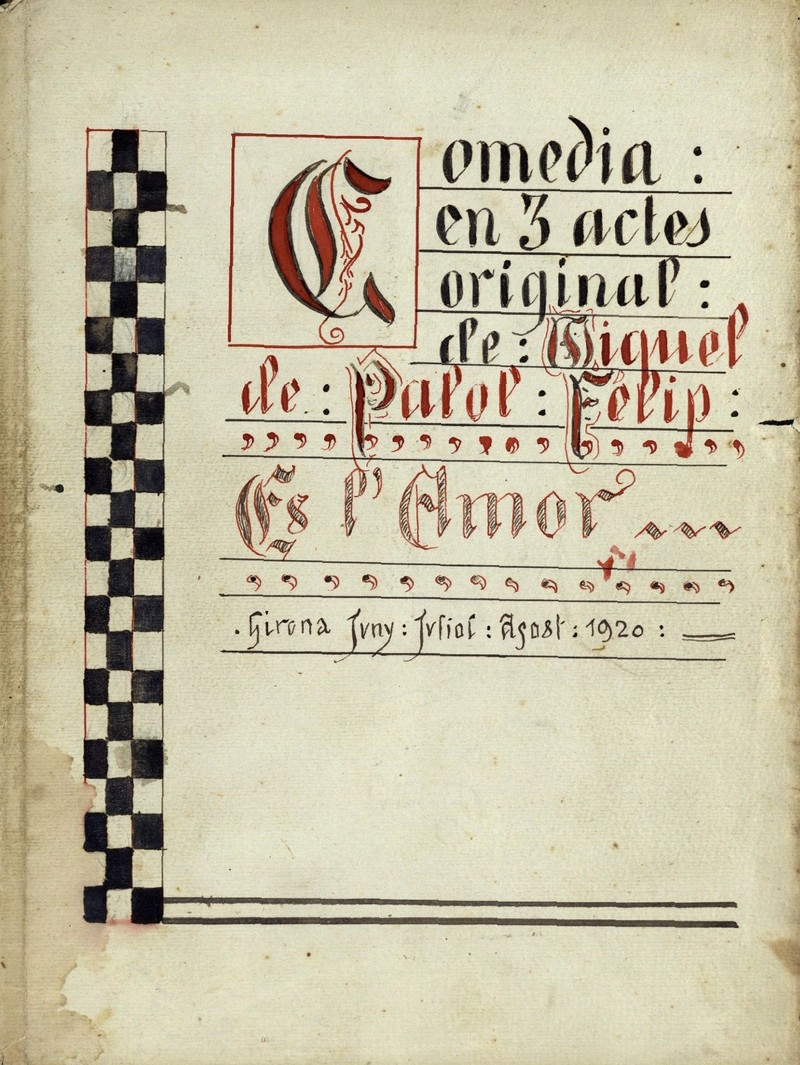 Comedia :
en 3 actes
original :
de : Miquel
de : Palol : Felip :
Es l'Amor ...
. Girona Juny : Juliol : Agost : 1920 :